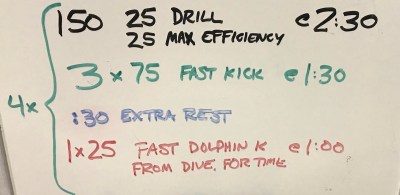 150 25 DRILL @2:30
25 MAX EFFICIENCY
3 x 75 FAST KICK @1:30
4x
:30 EXTRA REST
1x25 FAST DOLPHIN K @1:00
FROM DIVE, FOR TIME